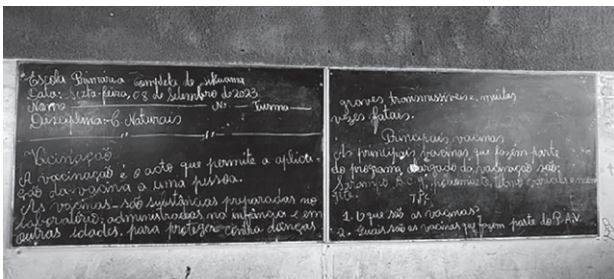 Escola Primária Completa de
Data: Sexta-feira, 08 de Setembro de 2023
Nome Nº Turma
Disciplina: C. Naturais
Vacinação
A vacinação é o acto que permite a aplica-
ção da vacina a uma pessoa.
As vacinas - são substâncias preparadas no
laboratório, administradas no infância e em
outras idades, para proteger contra doenças
graves transmissíveis e, muitas
vezes fatais.
Principais vacinas
As principais vacinas que fazem parte
do programa alargado da vacinação são:
Sarampo, B.C.G, poliomielite, tétano
TPC
1. O que são as vacinas?
2. Quais são as vacinas que fazem parte do P.A.V.